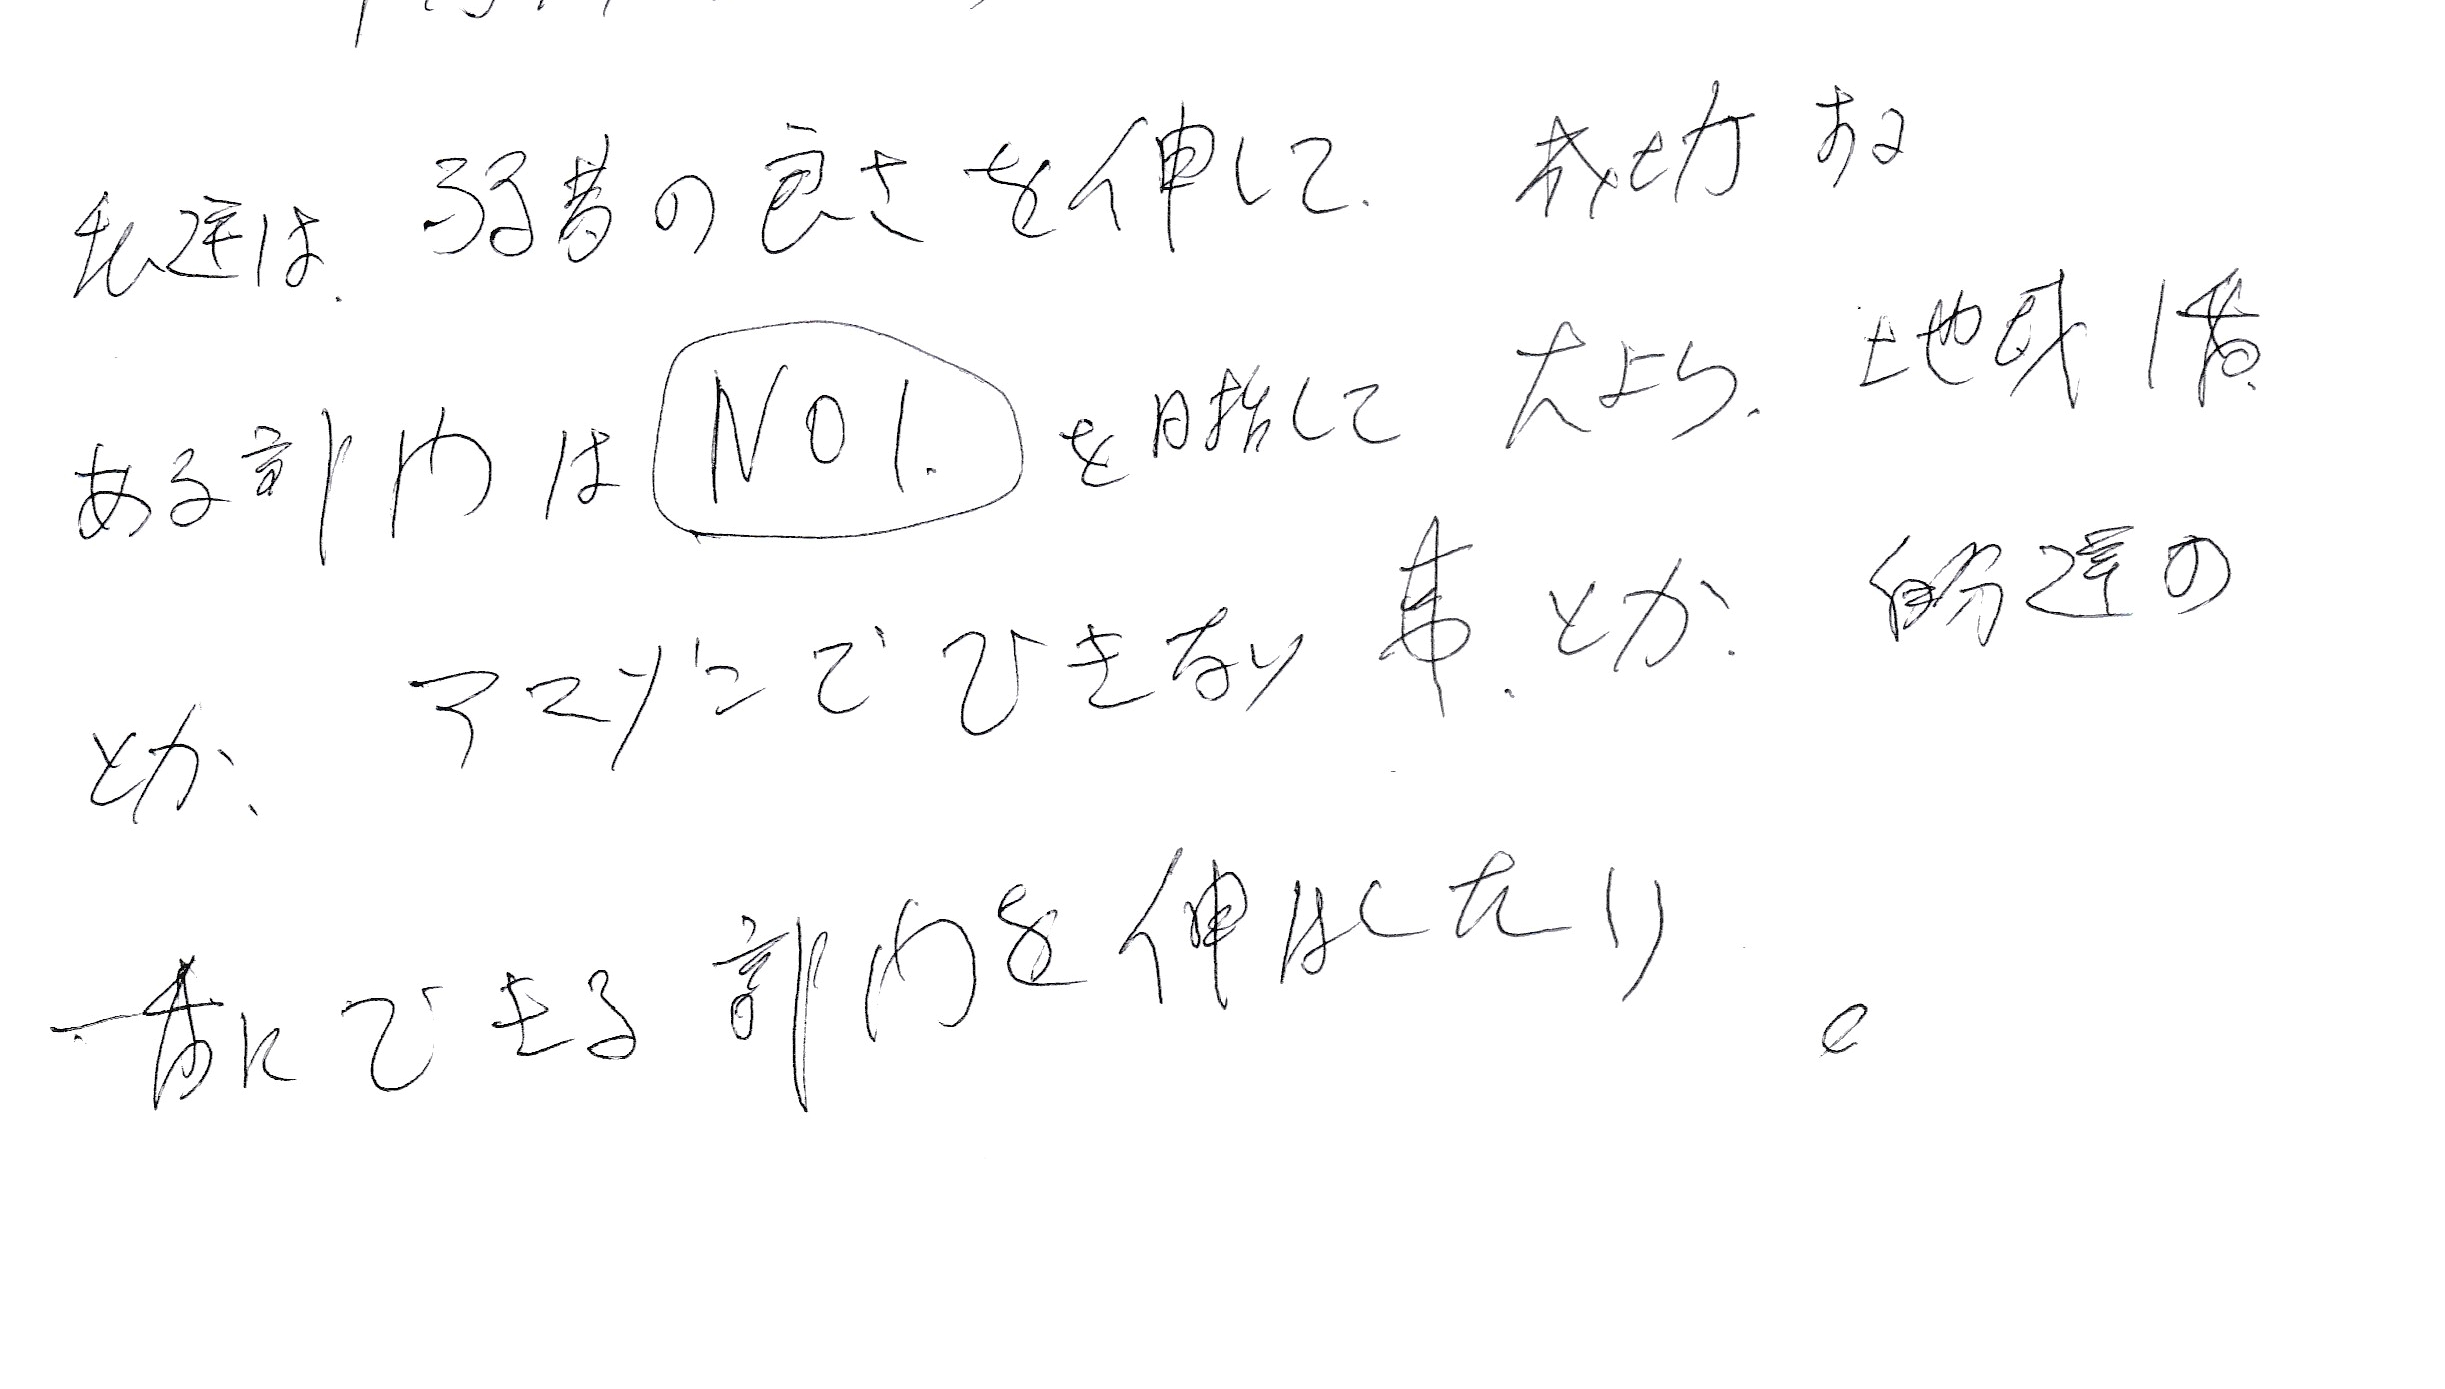 私達は、弱者の良さを伸して、成功する
ある部内は NO1. を目指してたよら、地域1番
とか、アマゾンでできない事、とか、自分達の
一番にできる部内を伸ばしたり。